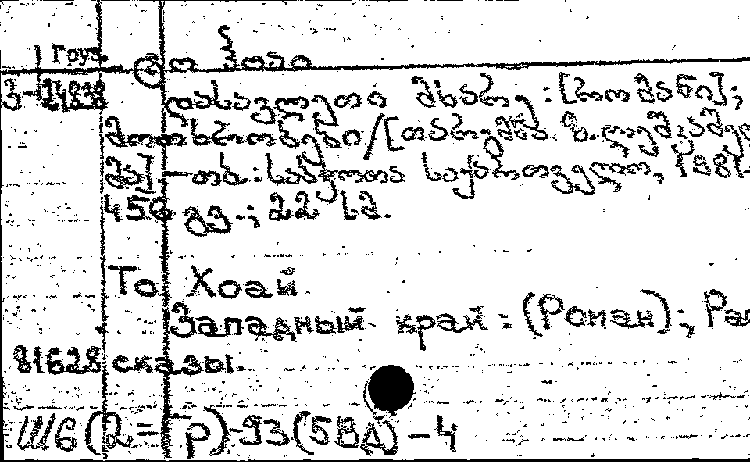 Груз.
თო ჰოაი
დასავლეთი მხარე : [რომანი];
მოთხრობები / [თარგმნა ზ.
მა]. — თბ. : საბჭოთა საქართველო, 1981.
456 გვ. ; 22 სმ.
То Хоай
Западный край : (Роман) ;
81628 сказы.
Ш6(2=Гр)-93(5ВД) - 4